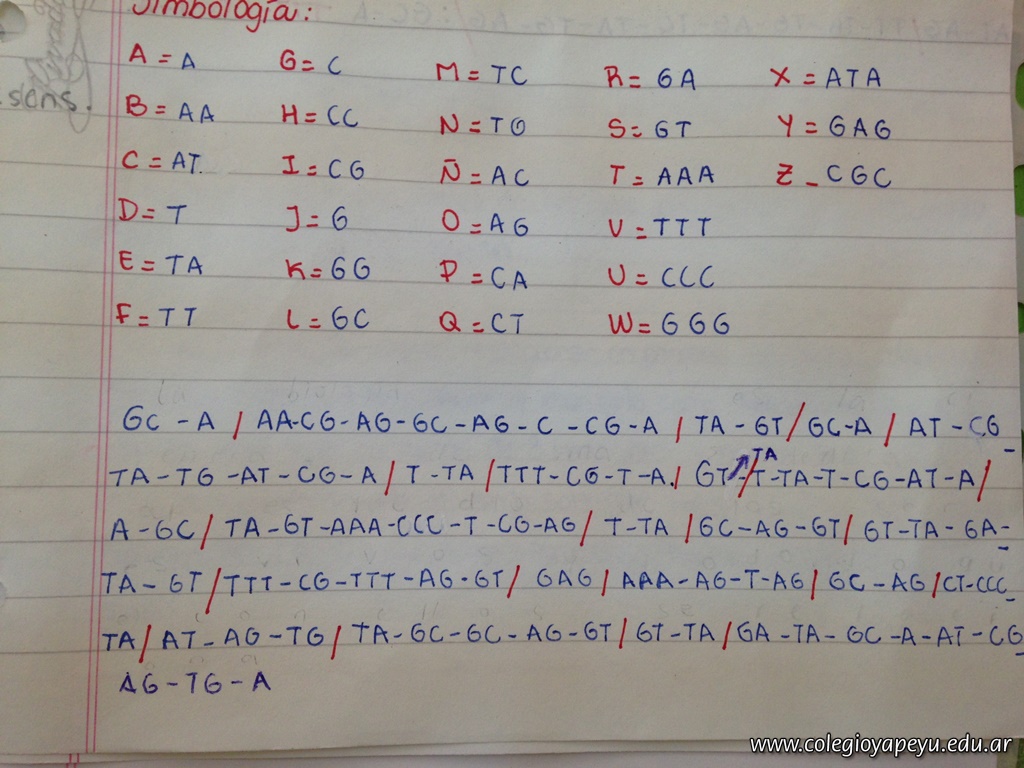 Simbología:
A = A G = C M = TC R = GA X = ATA
B = AA H = CC N = TG S = GT Y = GAG
C = AT. I = CG Ñ = AC T = AAA Z - CGC
D = T J = G O = AG V = TTT
E = TA K = GG P = CA U = CCC
F = TT L = GC Q = CT W = GGG
sens.
GC - A / AA-CG-AG-GC-AG-C-CG-A / TA - GT / GC-A / AT - CG
TA
TA-TG-AT-CG-A / T-TA / TTT-CG-T-A. / GT-/T-TA-T-CG-AT-A /
A-GC / TA-GT-AAA-CCC-T-CG-AG / T-TA / GC-AG-GT / GT-TA-GA-
TA-GT / TTT-CG-TTT-AG-GT / GAG / AAA-AG-T-AG / GC-AG / CT-CCC
TA / AT-AG-TG / TA-GC-GC-AG-GT / GT-TA / GA-TA-GC-A-AT-CG
AG-TG-A
www.colegioyapeyu.edu.ar